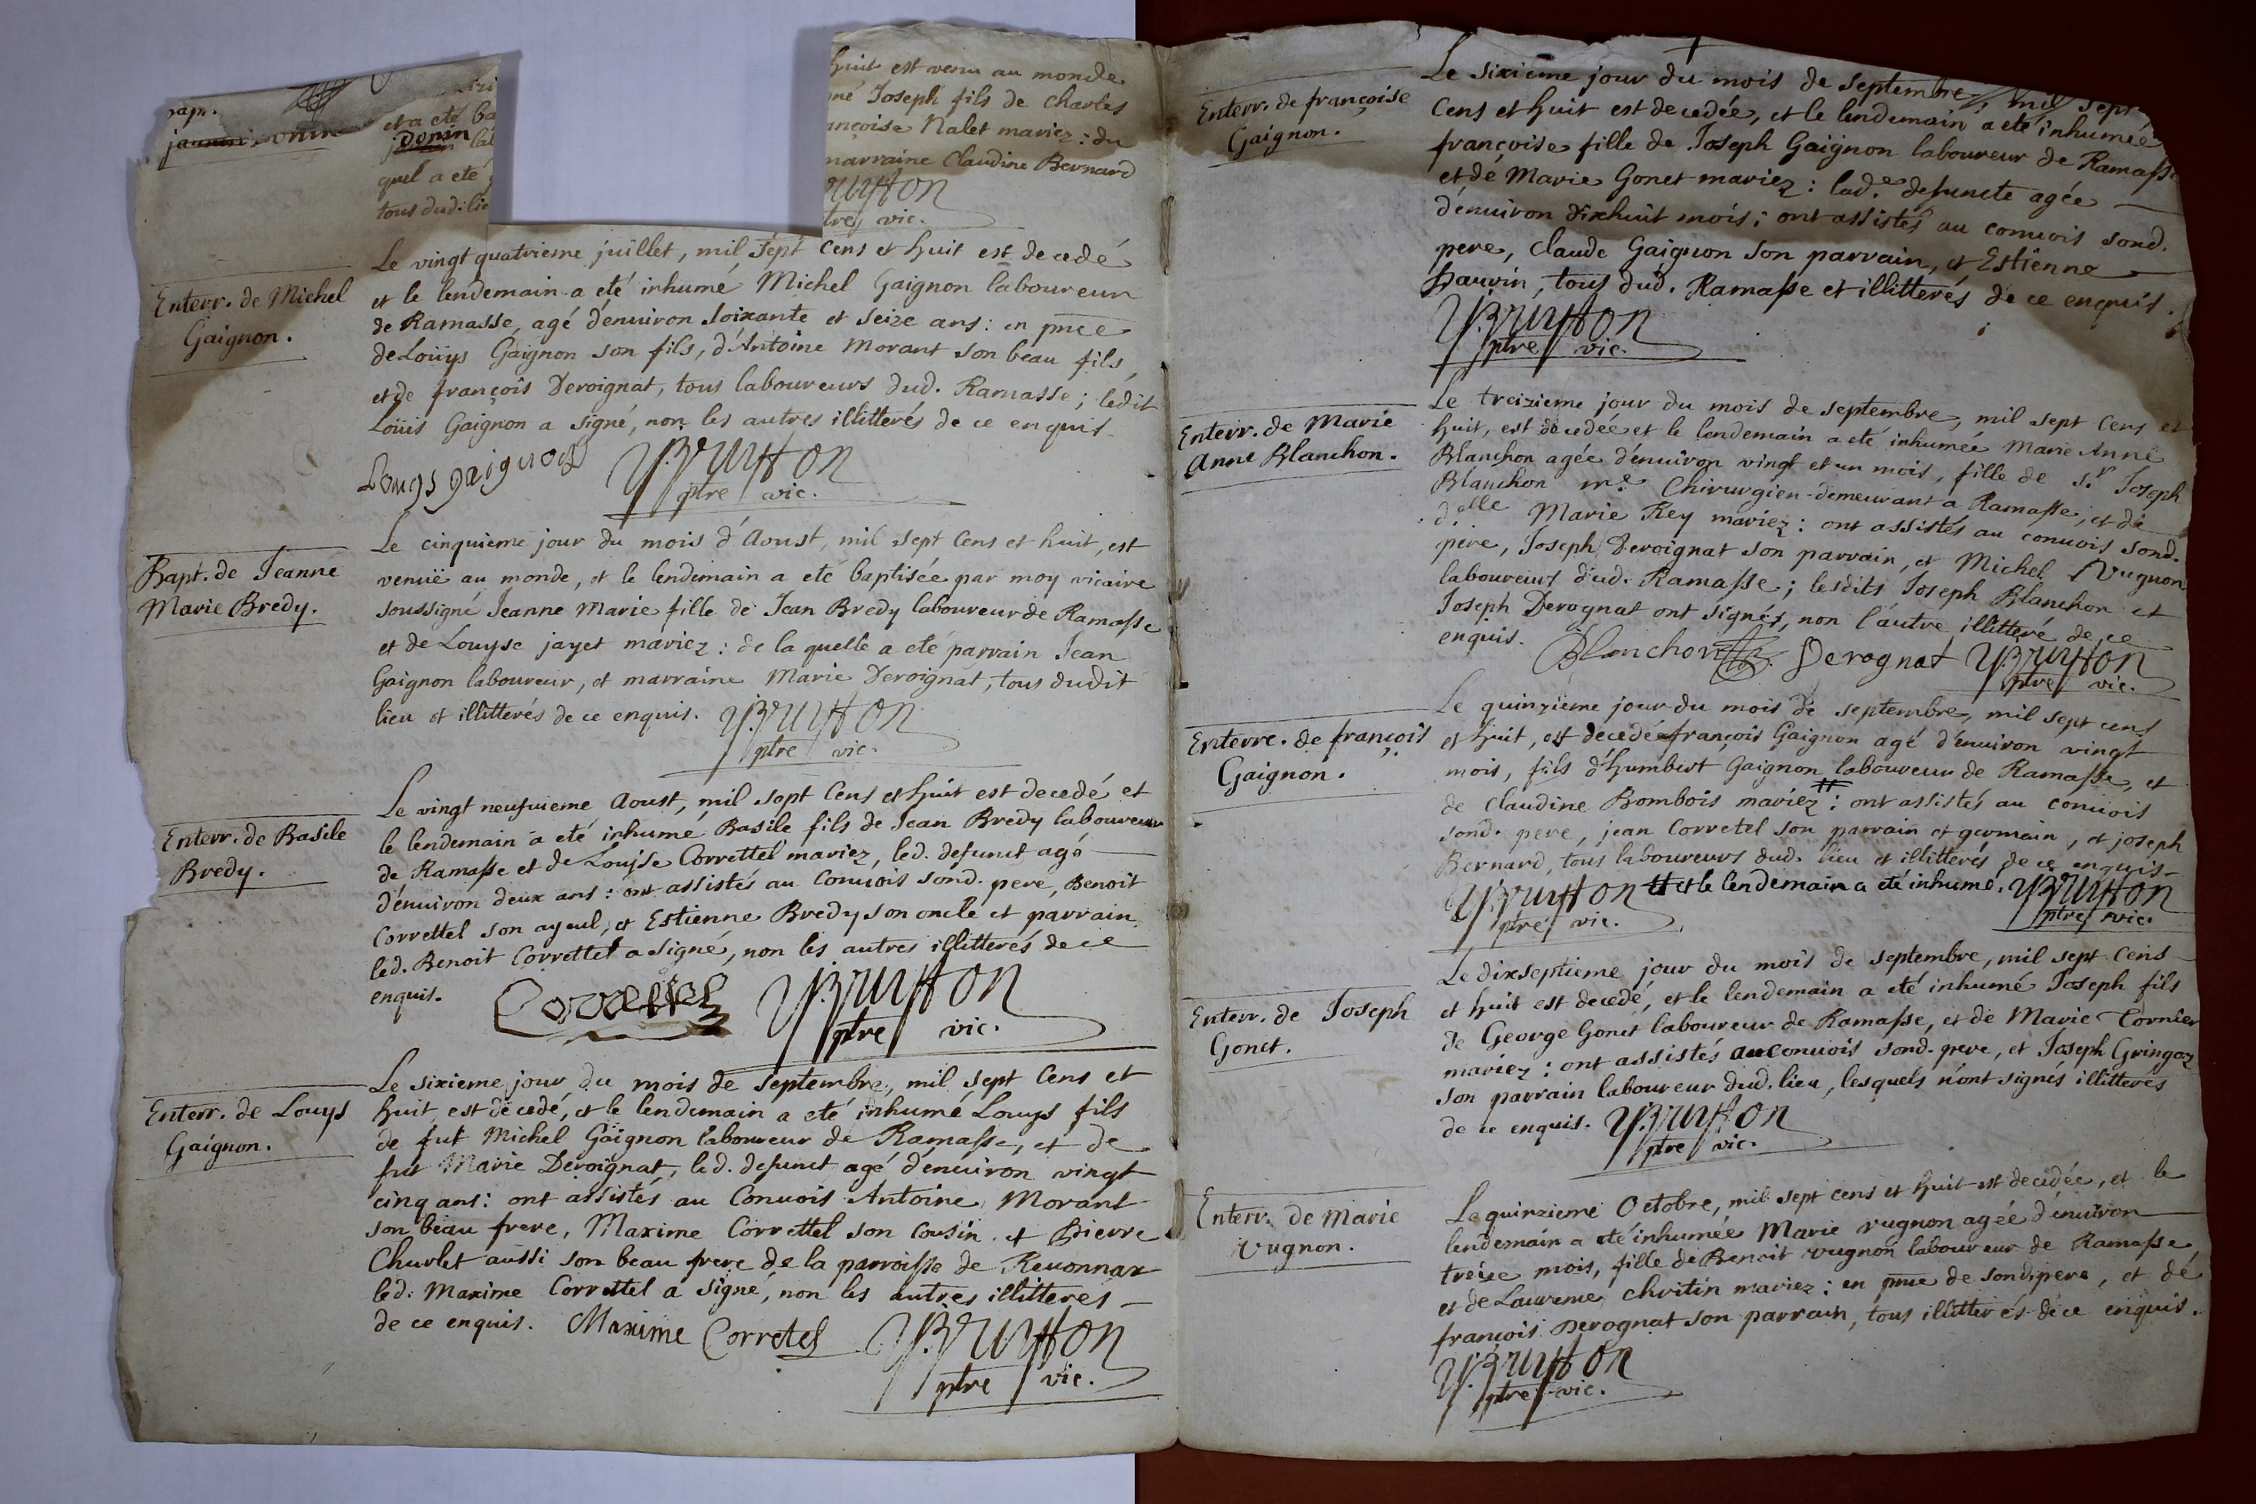 et a eté ba
Donin
quel a eté
tous dud. lie
huit est venu au monde
né Joseph fils de Charles
ançoise Nalet mariez: du
marraine Claudine Bernard
vic.
Enterr. de Michel
Gaignon.
Le vingt quatrieme juillet, mil sept cens et huit est decedé
et le lendemain a eté inhumé Michel Gaignon laboureur
de Ramasse, agé d'enuiron soixante et seize ans: en pnce
de Loüys Gaignon son fils, d'Antoine Morant son beau fils,
et de françois Deroignat, tous laboureurs dud. Ramasse; ledit
Loüis Gaignon a signé, non les autres illitterés de ce enquis.
Louys gaignon
ptre vic.
Bapt. de Jeanne
Marie Bredy.
Le cinquieme jour du mois d'Aoust, mil sept cens et huit, est
venuë au monde, et le lendemain a eté baptisée par moy vicaire
soussigné Jeanne Marie fille de Jean Bredy laboureur de Ramasse
et de Louyse jayet mariez: de la quelle a eté parrain Jean
Gaignon laboureur, et marraine Marie Deroignat, tous dudit
lieu et illitterés de ce enquis.
ptre vic.
Enterr. de Basile
Bredy.
Le vingt neufuieme Aoust, mil sept cens et huit est decedé et
le lendemain a eté inhumé Basile fils de Jean Bredy laboureur
de Ramasse et de Louyse Correttel mariez, led. defunct agé
d'enuiron deux ans: ont assistés au conuois sond. pere, Benoit
Correttel son ayeul, et Estienne Bredy son oncle et parrain
led. Benoit Correttel a signé, non les autres illitterés de ce
enquis.
Correttel
ptre vic.
Enterr. de Louys
Gaignon.
Le sixieme jour du mois de septembre, mil sept cens et
huit est decedé, et le lendemain a eté inhumé Louys fils
de fut Michel Gaignon laboureur de Ramasse, et de
fut Marie Deroignat, led. defunct agé d'enuiron vingt
cinq ans: ont assistés au Conuois Antoine Morant
son beau frere, Maxime Correttel son cousin et Pierre
Churlet aussi son beau frere de la parroisse de Reuonnax
led. Maxime Correttel a signé, non les autres illitteres
de ce enquis. Maxime Corretel
ptre vic.
Enterr. de françoise
Gaignon.
Le sixieme jour du mois de septembre, mil sept
cens et huit est decedée, et le lendemain a eté inhumée
françoise fille de Joseph Gaignon laboureur de Ramasse
et de Marie Gonet mariez: lad.e defuncte agée
d'enuiron dixhuit mois; ont assistés au conuois sond.
pere, Claude Gaignon son parrain, et Estienne
tous dud. Ramasse et illitterés de ce enquis.
ptre vic.
Enterr. de Marie
Anne Blanchon.
Le treizieme jour du mois de septembre, mil sept cens et
huit, est decedée et le lendemain a eté inhumée Marie Anne
Blanchon agée d'enuiron vingt et un mois, fille de s.r Joseph
Blanchon m.e Chirurgien demeurant a Ramasse, et de
d.elle Marie Rey mariez: ont assistés au conuois sond.
pere, Joseph Deroignat son parrain, et Michel Vugnon
laboureurs dud. Ramasse; lesdits Joseph Blanchon et
Joseph Derognat ont signés, non l'autre illitteré de ce
enquis.
Blanchon Derognat
ptre vic.
Enterre. de françois
Gaignon.
Le quinzieme jour du mois de septembre, mil sept cens
et huit, est decedé françois Gaignon agé d'enuiron vingt
mois, fils d'humbert Gaignon laboureur de Ramasse, et
de Claudine Bombois mariez: ont assistés au conuois
sond. pere, jean Corretel son parrain et germain, et joseph
Bernard, tous laboureurs dud. lieu et illitterés de ce enquis
# et le lendemain a eté inhumé.
ptre vic. ptre vic.
Enterr. de Joseph
Gonet.
Le dixseptieme jour du mois de septembre, mil sept cens
et huit est decedé, et le lendemain a eté inhumé Joseph fils
de George Gonet laboureur de Ramasse, et de Marie Tornier
mariez: ont assistés au conuois sond. pere, et Joseph Gringoz
son parrain laboureur dud. lieu, lesquels n'ont signés illitterés
de ce enquis.
ptre vic.
Enterr. de Marie
Vugnon.
Le quinzieme Octobre, mil sept cens et huit est decedée, et le
lendemain a eté inhumée Marie vugnon agée d'enuiron
treize mois, fille de Benoit vugnon laboureur de Ramasse
et de Laurence chritin mariez: en pnce de sond. pere, et de
françois Derognat son parrain, tous illitterés de ce enquis.
ptre vic.